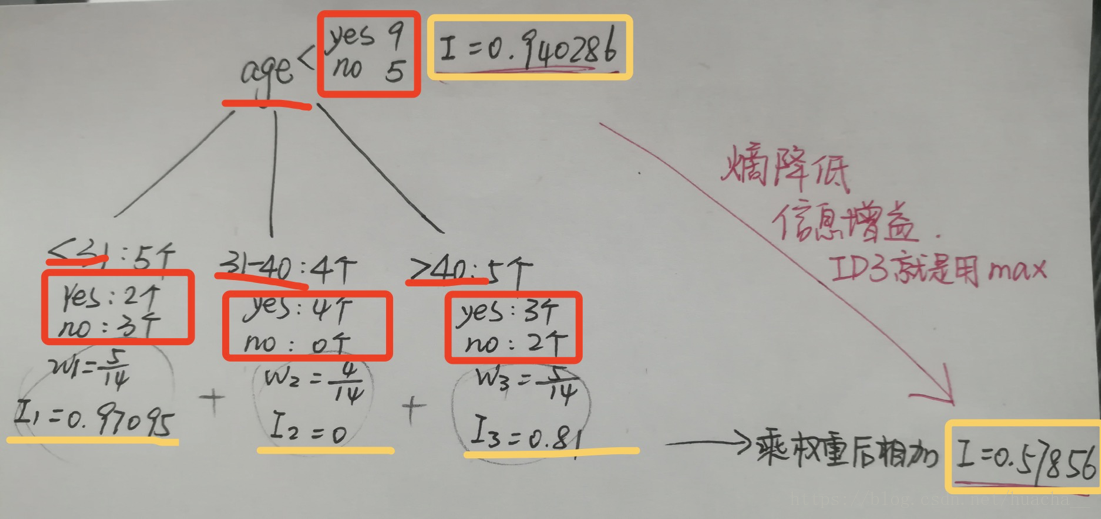 age < yes 9
no 5
I=0.940286
熵降低
信息增益.
ID3就是用max
<31:5个
yes:2个
no:3个
w1=5/14
I1=0.97095
+
31-40:4个
yes:4个
no:0个
w2=4/14
I2=0
+
>40:5个
yes:3个
no:2个
w3=5/14
I3=0.81
→乘权重后相加 I=0.57856